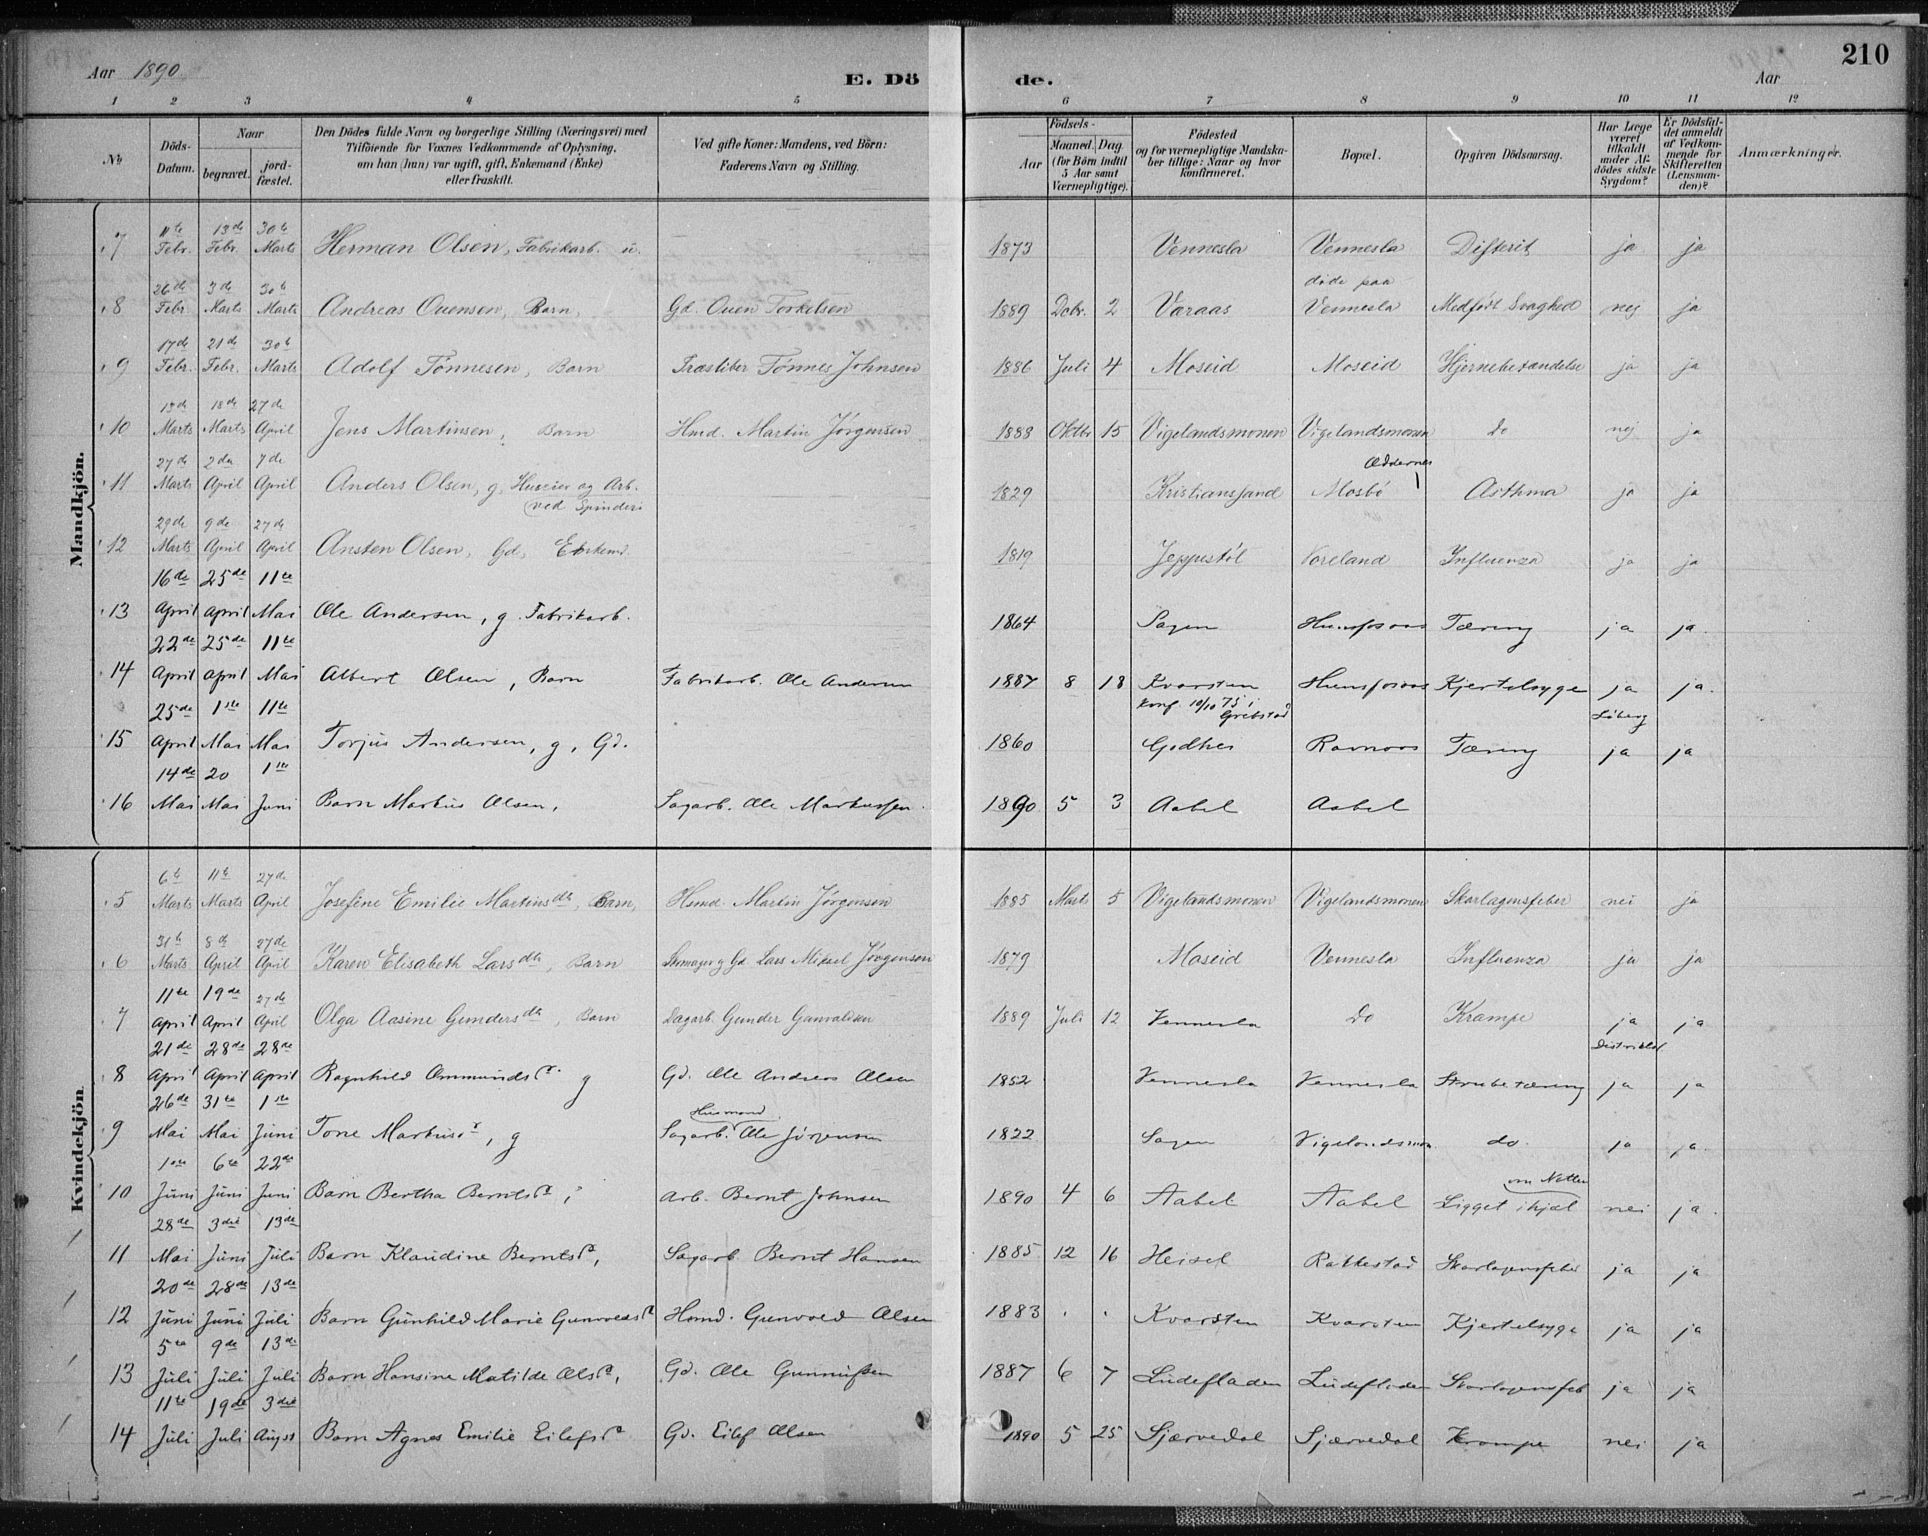 210
Aar 1890 E. Dö de. Aar
1 2 3 4 5 6 7 8 9 10 11 12
№ Döds-Datum. Naar begravet. jordfæstet. Den Dödes fulde Navn og borgerlige Stilling (Næringsvei) med Tilföiende for Voxnes Vedkommende af Oplysning, om han (hun) var ugift, gift, Enkemand (Enke) eller fraskilt. Ved gifte Koner: Mandens, ved Börn: Faderens Navn og Stilling. Födsels- Aar Maaned. Dag. (for Börn indtil 5 Aar samt Værnepligtige). Födested og for værnepligtige Mandskaber tillige: Naar og hvor konfirmeret. Bopæl. Opgiven Dödsaarsag. Har Læge været tilkaldt under Afdödes sidste Sygdom? Er Dödsfaldet anmeldt af Vedkommende for Skifteretten (Lensmanden)? Anmærkninger.
Mandkjön.
7 11te Febr. 13de Febr. 30te Marts Herman Olsen, Fabrikarb. u. 1873 Vennesla Vennesla Difterit ja ja
8 26de Febr. 3de Marts 30te Marts Andreas Ouensen, Barn, Gd. Ouen Torkelsen 1889 Dcbr. 2 Væraas døde paa Vennesla Medfødt Svaghed nej ja
9 17de Febr. 21de Febr. 30te Marts Adolf Tönnesen, Barn Træsliber Tønnes Johnsen 1886 Juli 4 Moseid Moseid Hjernebetændelse ja ja
10 13de Marts 18de Marts 27de April Jens Martinsen, Barn Hmd. Martin Jørgensen 1888 Oktbr 15 Vigelandsmonen Vigelandsmonen do nej ja
11 27de Marts 2den April 7de April Anders Olsen, g, Huseier og Arb. ved Spinderi 1829 Kristianssand Mosbö Oddernes Asthma ja ja
12 29de Marts 9de April 27de April Ansten Olsen, Gd, Enkemd. 1819 Jeppestöl Voreland Influenza ja ja
13 16de April 25de April 11te Mai Ole Andersen, g. Fabrikarb. 1864 Sagen Hunsfosaas Tæring ja ja.
14 22de April 25de April 11te Mai Albert Olsen, Barn Fabrikarb. Ole Andersen 1887 8 18 Kvarsten Hunsfosaas Kjertelsyge ja ja.
15 25de April 1ste Mai 11te Mai Torjus Andersen, g, Gd. 1860 konf 10/10 75 i Grebstad Ravnaas Tæring Löberg ja ja
16 14de Mai 20 Mai 1ste Juni Barn Markus Olsen, Sagarb. Ole Markussen. 1890 5 3 Aabel Aabel
Kvindekjön.
5 6te Marts 11te Marts 27de April Josefine Emilie Martinsdtr, Barn, Hsmd. Martin Jörgensen 1885 Marts 5 Vigelandsmonen Vigelandsmonen Skarlagensfeber nei ja
6 31te Marts 8de April 27de April Karen Elisabeth Larsdtr, Barn Skomager g Gd Lars Mikael Jørgensen 1879 Moseid Vennesla Influenza ja ja
7 11te April 19de April 27de April Olga Aasine Gundersdtr, Barn Dagarb. Gunder Gunvaldsen 1889 Juli 12 Vennesla do Krampe ja ja
8 21de April 28de April 28de April Ragnhild Ommundsdr. g Gd. Ole Andreas Olsen 1852 Vennesla Vennesla Strubetæring Distriktsl. ja ja
9 26de Mai 31te Mai 1ste Juni Tone Markusdr, g Husmand Sagarb. Ole Jörgensen 1822 Sagen Vigelandsmon do. ja ja.
10 1ste Juni 6te Juni 22de Juni Barn Bertha Berntsdr, Arb. Bernt Johnsen 1890 4 6 Aabel Aabel Ligget ihjæl om Natten nei ja.
11 28de Mai 3die Juni 13de Juli Barn Klaudine Berntsdr, Sagarb. Bernt Hansen 1885 12 16 Heisel Rakkestad Skarlagensfeber ja ja
12 20de Juni 28de Juni 13de Juli Barn Gunhild Marie Gunvoldsdr Hsmd. Gunvold Olsen 1883 Kvarsten Kvarsten Kjertelsyge ja ja
13 5te Juli 9de Juli 13de Juli Barn Hansine Matilde Olsdr, Gd. Ole Gunnufsen 1887 6 7 Ludefladen Ludefladen Skarlagensfeb ja ja
14 11te Juli 19de Juli 3die August Barn Agnes Emilie Eilefsdr Gd. Eilef Olsen 1890 5 25 Sjærvedal Sjærvedal Krampe nei ja